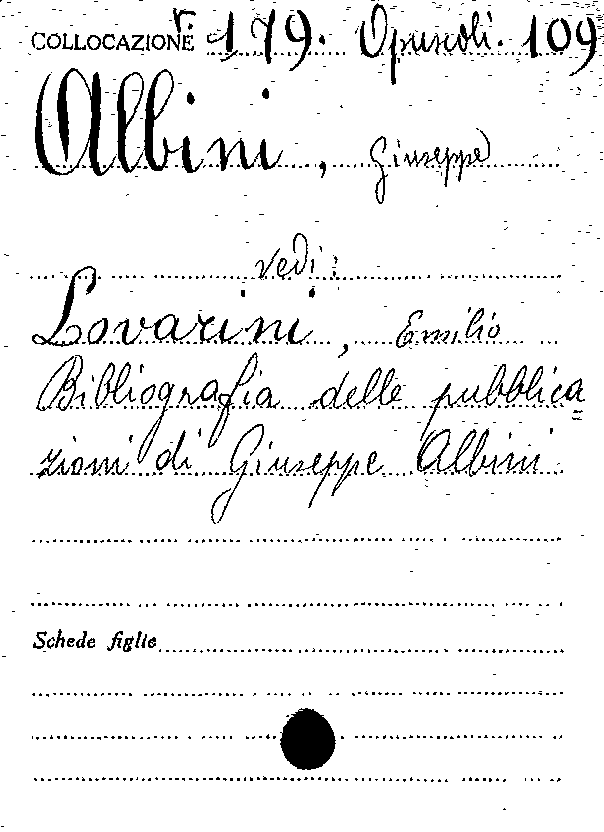 COLLOCAZIONE r. 179. Opuscoli. 109
Albini, Giuseppe
vedi:
Lovarini, Emilio
Bibliografia delle pubblica=
zioni di Giuseppe Albini
Schede figlie